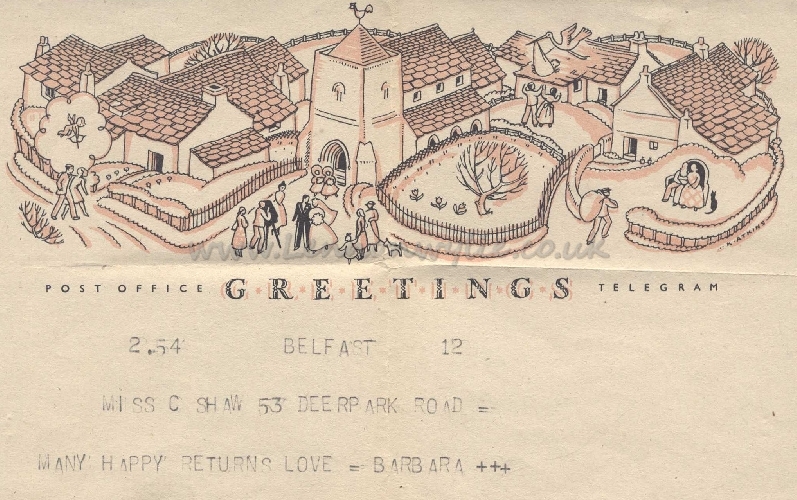 R. ATKINS
www.Lennonwylie.co.uk
POST OFFICE GREETINGS TELEGRAM
2.54 BELFAST 12
MISS C SHAW 53 DEERPARK ROAD =
MANY HAPPY RETURNS LOVE = BARBARA +++